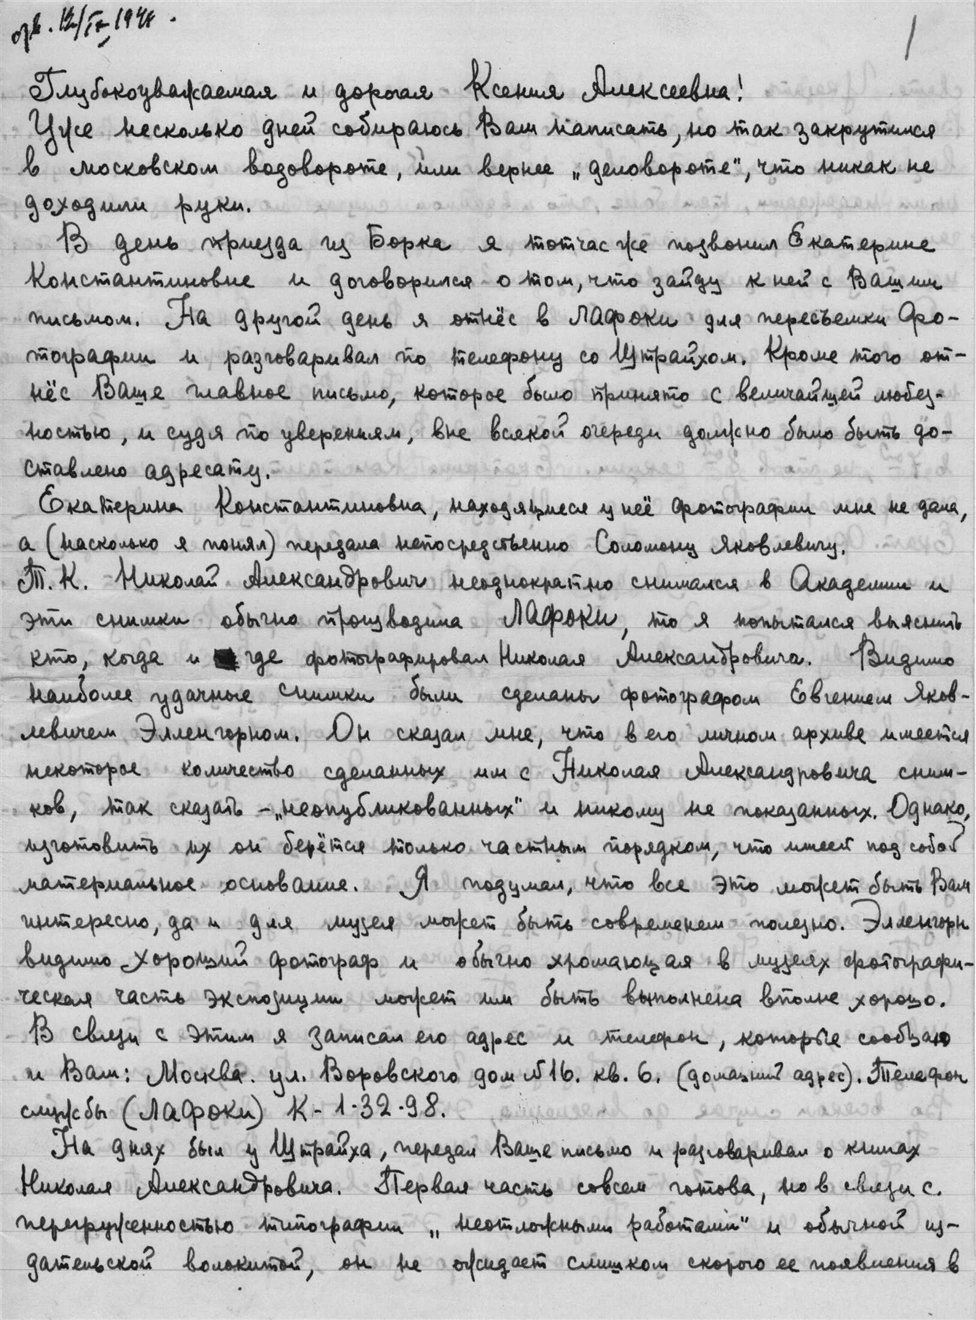 отв. 12/IX 194
1
Глубокоуважаемая и дорогая Ксения Алексеевна!
Уже несколько дней собираюсь Вам написать, но так закрутился
в московском водовороте, или вернее „деловороте", что никак не
доходили руки.
В день приезда из Борка я тотчас же позвонил Екатерине
Константиновне и договорился о том, что зайду к ней с Вашим
письмом. На другой день я отнёс в ЛАФОКИ для пересъемки фо-
тографии и разговаривал по телефону со Штрайхом. Кроме того от-
нёс Ваше главное письмо, которое было принято с величайшей любез-
ностью, и судя по уверениям, вне всякой очереди должно было быть до-
ставлено адресату.
Екатерина Константиновна, находящиеся у неё фотографии мне не дала,
а (насколько я понял) передала непосредственно Соломону Яковлевичу.
Т.К. Николай Александрович неоднократно снимался в Академии и
эти снимки обычно производила ЛАФОКИ, то я попытался выяснить
кто, когда и где фотографировал Николая Александровича. Видимо
наиболее удачные снимки были сделаны фотографом Евгением Яков-
левичем Элленгорном. Он сказал мне, что в его личном архиве имеется
некоторое количество сделанных им с Николая Александровича сним-
ков, так сказать – „неопубликованных" и никому не показанных. Однако,
изготовить их он берётся только частным порядком, что имеет под собой
материальное основание. Я подумал, что все это может быть Вам
интересно, да и для музея может быть современем полезно. Элленгорн
видимо хороший фотограф и обычно хромающая в музеях фотографи-
ческая часть экспозиции может им быть выполнена вполне хорошо.
В связи с этим я записал его адрес и телефон, которые сообщаю
и Вам: Москва. ул. Воровского дом №16. кв. 6. (домашний адрес). Телефон
службы (ЛАФОКИ) К-1-32-98.
На днях был у Штрайха, передал Ваше письмо и разговаривал о книгах
Николая Александровича. Первая часть совсем готова, но в связи с
перегруженностью типографии „неотложными работами" и обычной из-
дательской волокитой, он не ожидает слишком скорого ее появления в